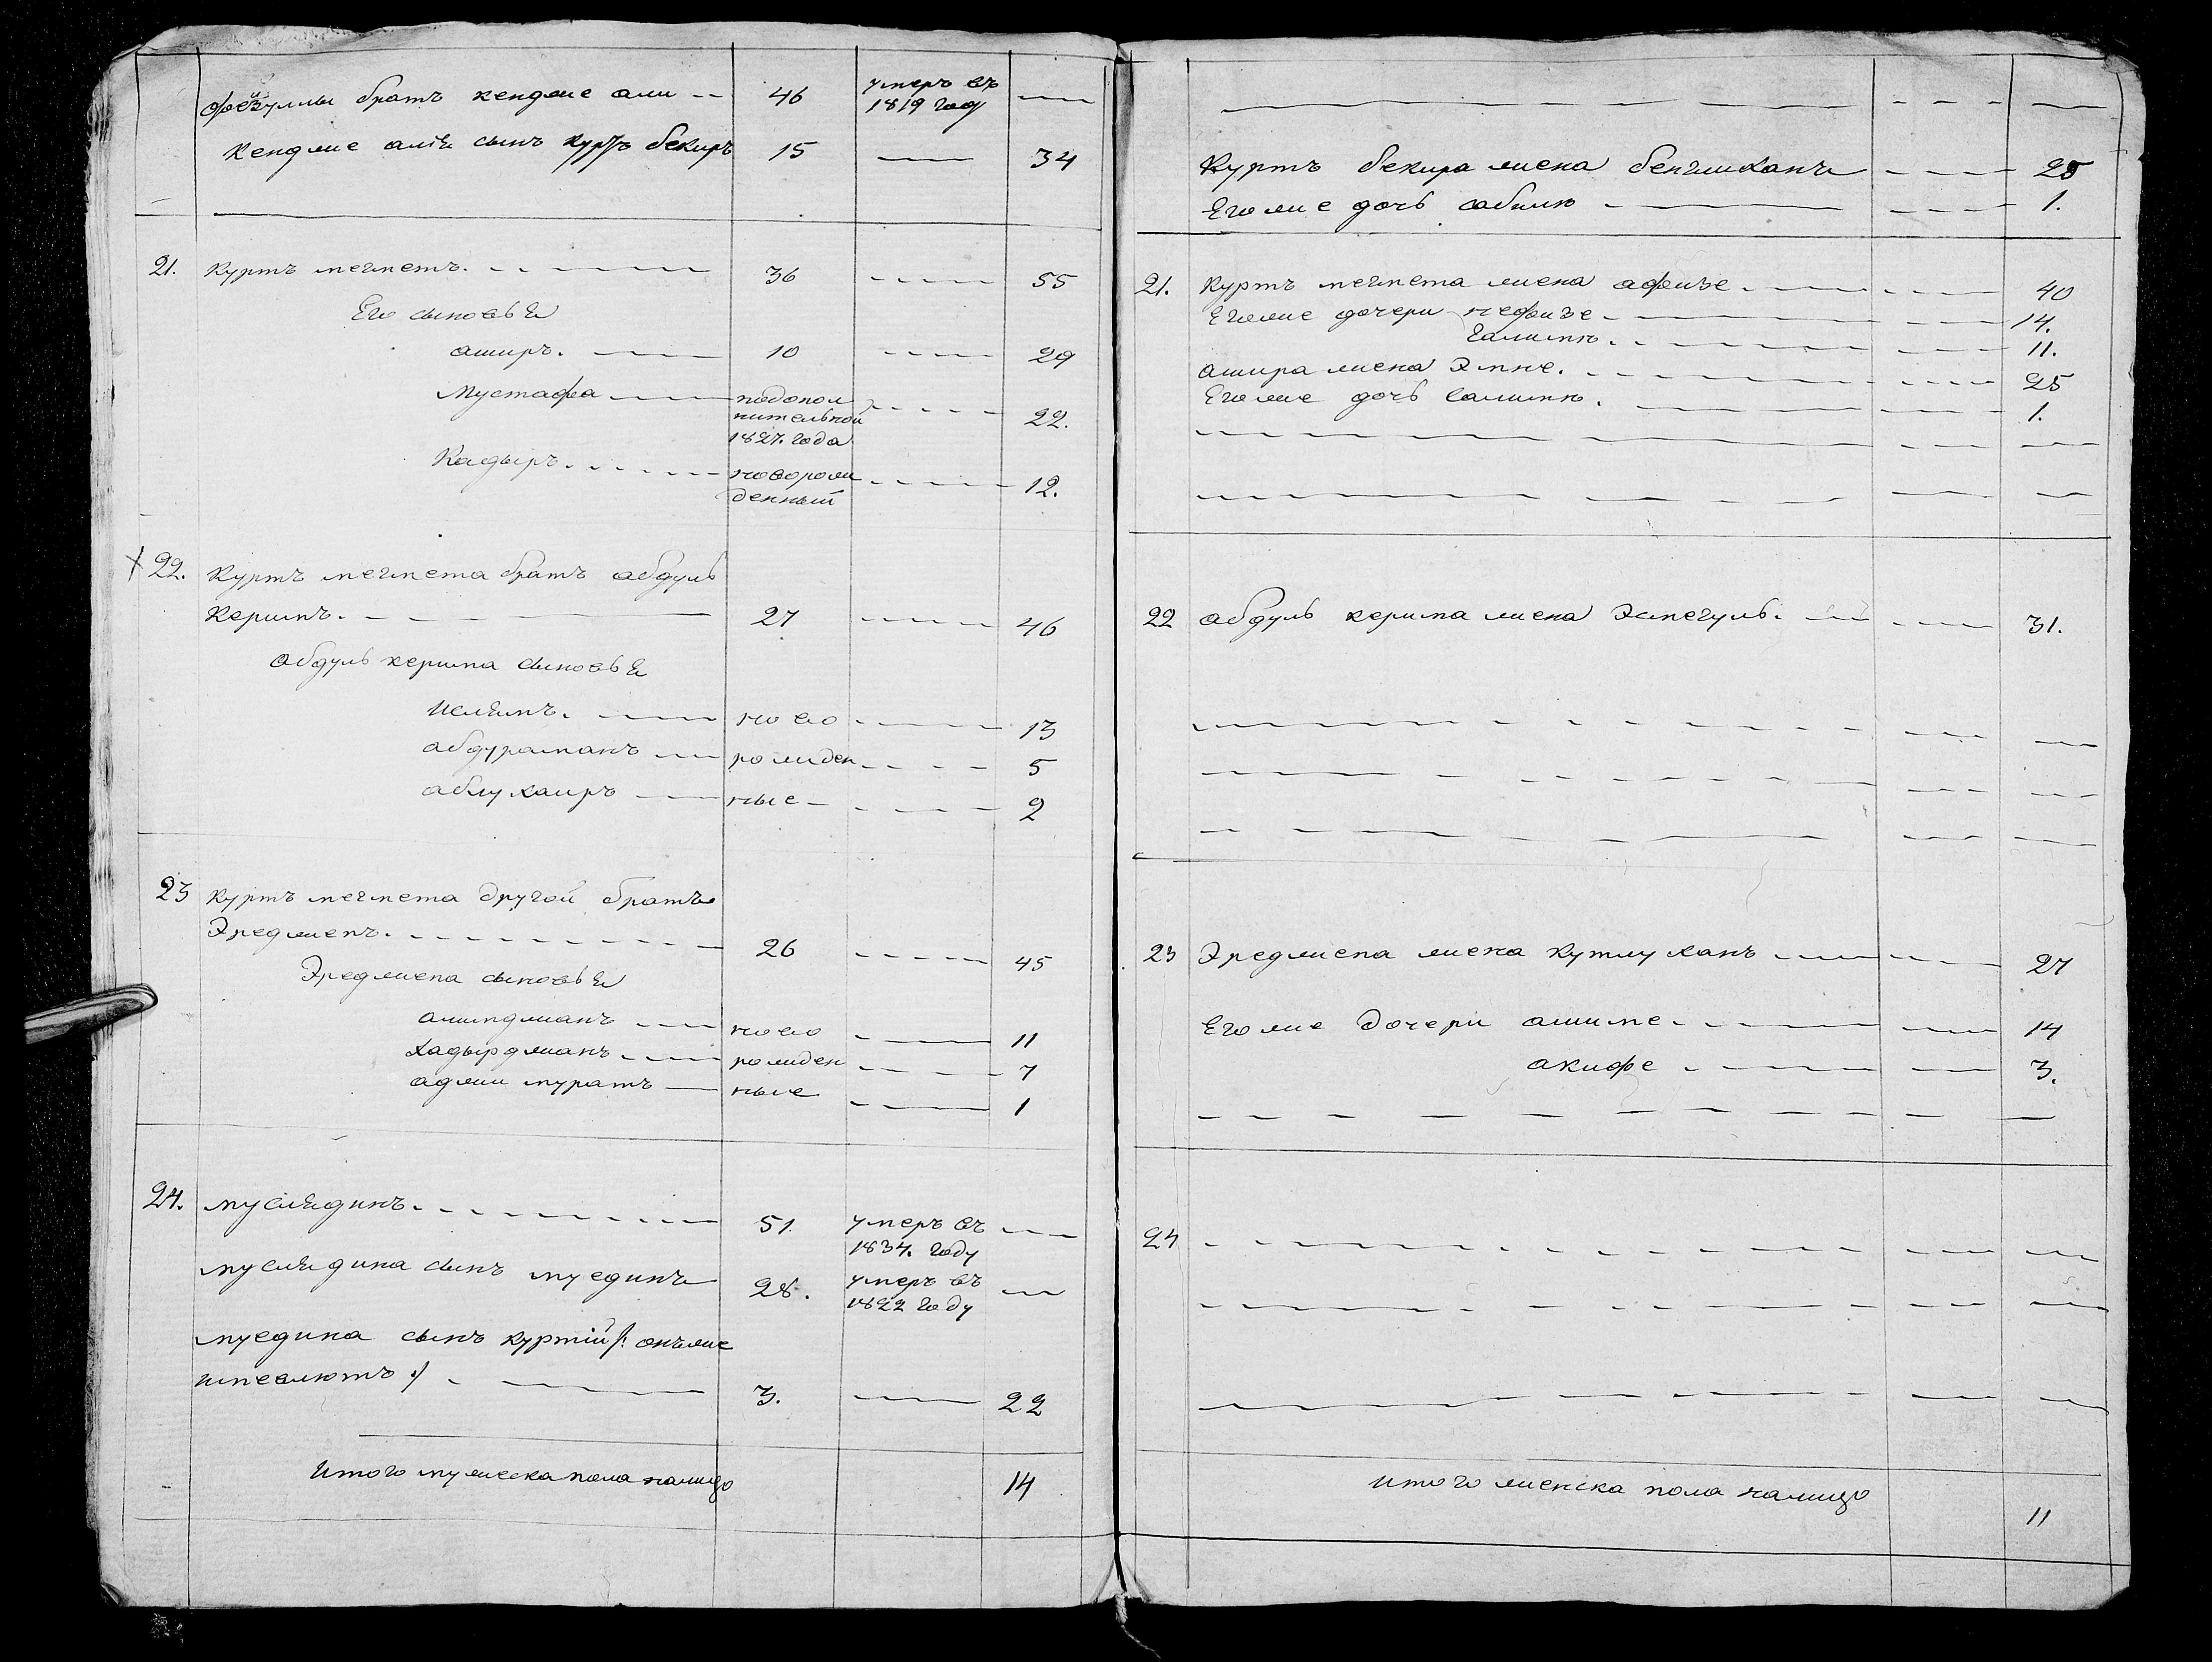 фейзуллы братъ кендже али -- 46 умеръ въ 1819 году —
Кендже алія сынъ куртъ бекиръ 15 — 34
21. Куртъ мегметъ. 36 — 55
Его сыновья
аширъ. 10 — 29
Мустафа подополнительной 1827. года — 22.
Кадыръ. новорожденный — 12.
22. Куртъ мегмета братъ абдуль
Керимъ. 27 — 46
Абдуль керима сыновья
Ислямъ. ново — 13
абдураманъ рожден — 5
аблухаиръ ные — 2
23 Куртъ мегмета другой братъ
Эреджепъ. 26 — 45
Эреджепа сыновья
ашимджанъ ново — 11
хадырджанъ рожден — 7
аджи муратъ ные — 1
24. муслядинъ. 51. умеръ въ 1834. году —
муслядина сынъ муединъ 28. умеръ въ 1822 году —
муедина сынъ куртій /: онъ же
именлютъ :/ 3. — 22
Итого мужеска пола налицо 14
Куртъ бекира жена бенглиханъ — 25
Его же дочь сабилю — 1.
21. Куртъ мегмета жена афизе. — 40
Его же дочери нефизе — 14.
Галимю. — 11.
ашира жена Эмне. — 25
Его же дочь салимю. — 1.
22 абдуль керима жена Эсмегуль. — 31.
23 Эреджепа жена кутлуханъ — 27
Его же дочери ашиме. — 14
акифе — 3.
24
Итого женска пола налицо 11